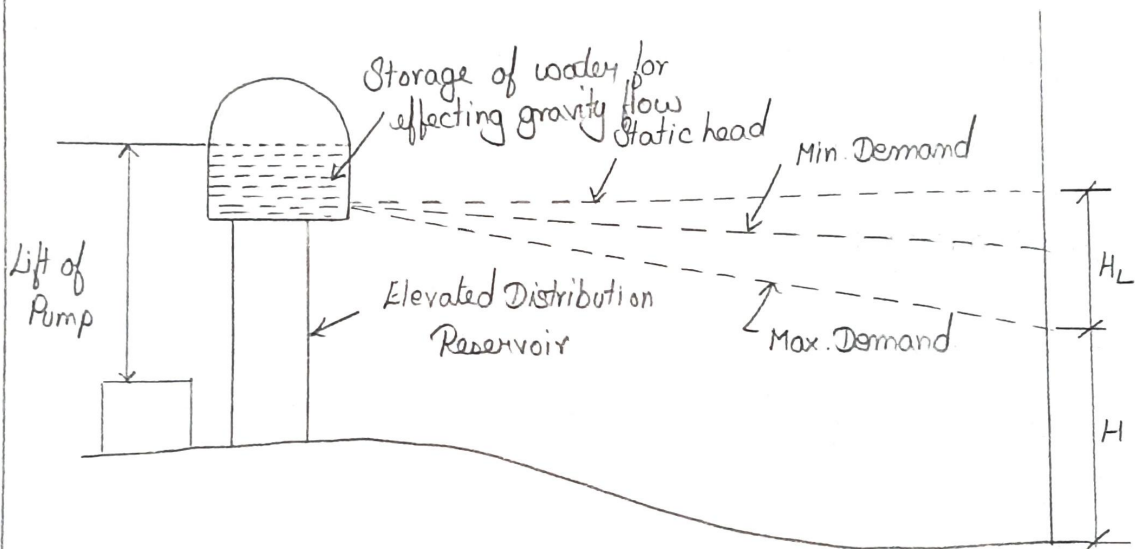 Storage of water for
effecting gravity flow
Static head
Min. Demand
Lift of
Pump
HL
Elevated Distribution
Reservoir
Max. Demand
H